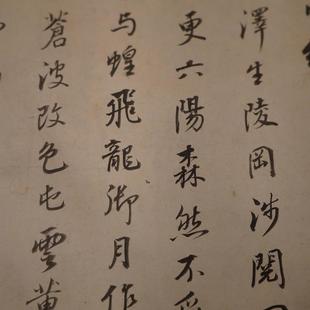 澤生陵岡涉閱
更六陽森然不
与蝗飛龍御月作
蒼波改色屯雲黄